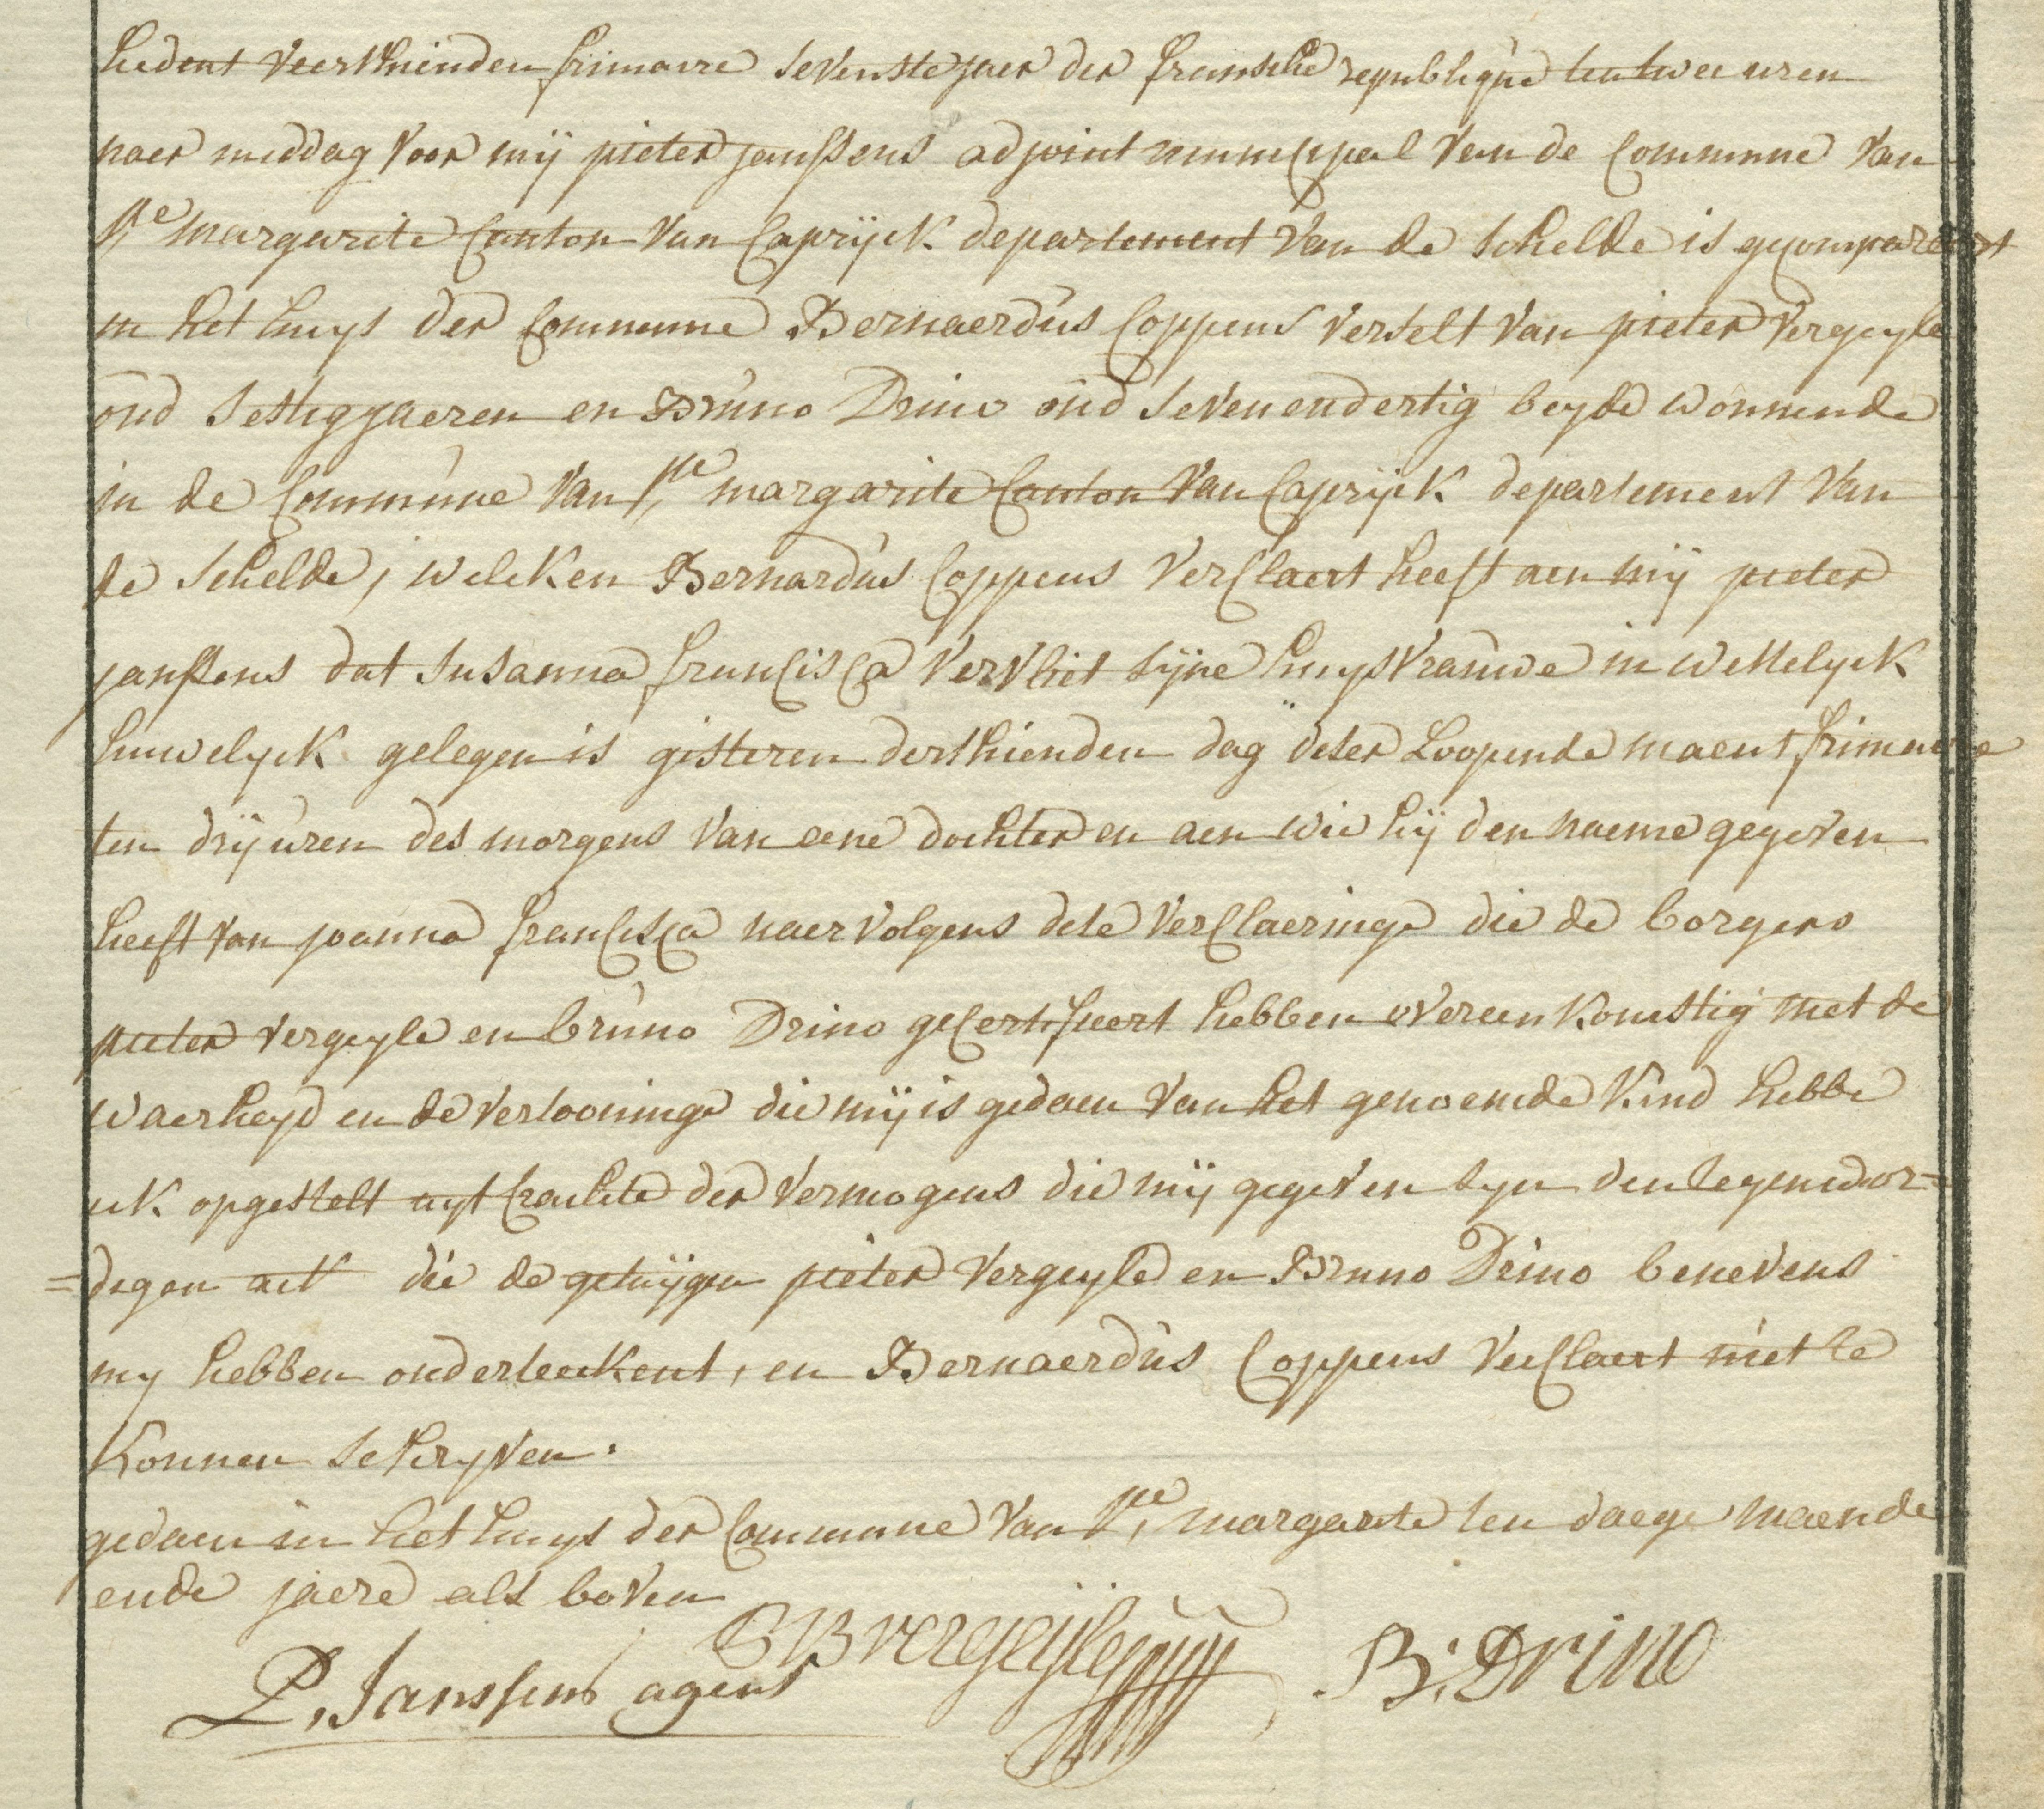 hedent veerthienden frimaire sevenste jaer der fransche republique ten twee uren
naer middag voor mij pieter janssens adjoint municipal van de Commune van
Ste margarite Canton van Caprijck departement van de schelde is gecompareert
in het huys der Commune Bernaerdus Coppens verselt van pieter vergeyle
oud sestig jaeren en Bruno Drino oud sevenendertig beyde wonnende
in de Commune van Ste margarite Canton van Caprijck departement van
de schelde, welcken Bernardus Coppens verclaert heeft aen mij pieter
janssens dat susanna francisca vervliet sijne huysvrauwe in wettelyck
huwelyck gelegen is gisteren derthienden dag deser Loopende maent frimaire
ten drij uren des morgens van eene dochter en aen wie hij den naeme gegeven
heeft van joanna francisca naervolgens dese verclaeringe die de borgers
pieter vergeyle en bruno Drino gecertifieert hebben overeenkomstig met de
waerheyd en de vertooninge die mij is gedaen van het genoemde kind hebbe
ick opgestelt uyt crachte der vermogens die mij gegeven syn den tegenwor=
=degen act die de getuijgen pieter vergeyle en Bruno Drino benevens
my hebben onderteekent, en Bernaerdus Coppens verclaert niet te
konnen schryven.
gedaen in het huys der Commune van Ste margarite ten daege maende
ende jaere als boven
P. Janssens agent vergeyle B: Drino